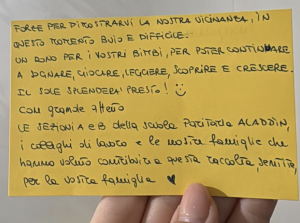 FORTE PER DIMOSTRARVI LA NOSTRA VICINANZA, IN
QUESTO MOMENTO BUIO E DIFFICILE.
UN DONO PER I VOSTRI BIMBI, PER POTER CONTINUARE
A SOGNARE, GIOCARE, LEGGERE, SCOPRIRE E CRESCERE.
IL SOLE SPLENDERÀ PRESTO! 😊
Con grande affetto
LE SEZIONI A e B della scuola PARITARIA ALADDIN,
i colleghi di lavoro e le nostre famiglie che
hanno voluto contribuire a questa raccolta,
per la vostra famiglia ♥